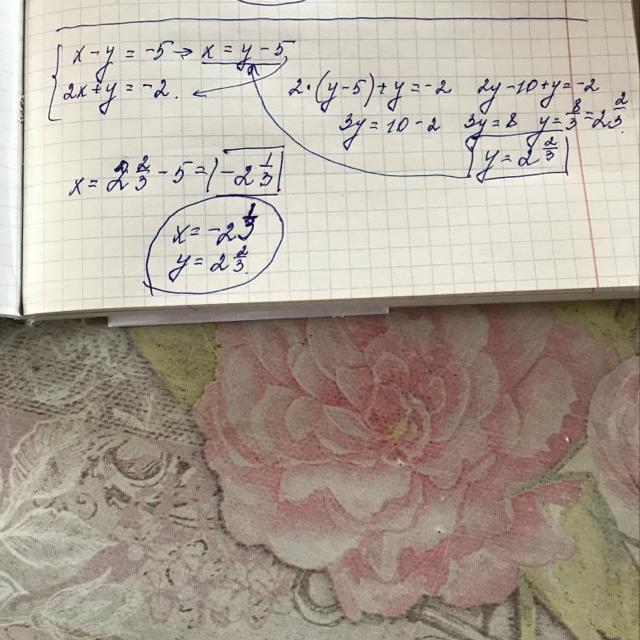 x - y = -5 → x = y - 5
2x + y = -2.
2·(y-5)+y=-2 2y-10+y=-2
3y = 10 - 2 3y = 8 y = 8/3 = 2 2/3
y = 2 2/3
x = 2 2/3 - 5 = -2 1/3
x = -2 1/3
y = 2 2/3